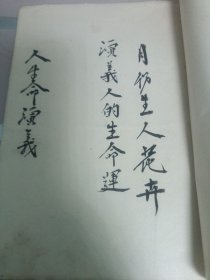 月仿生人花卉
演義人的生命運
人生命演義